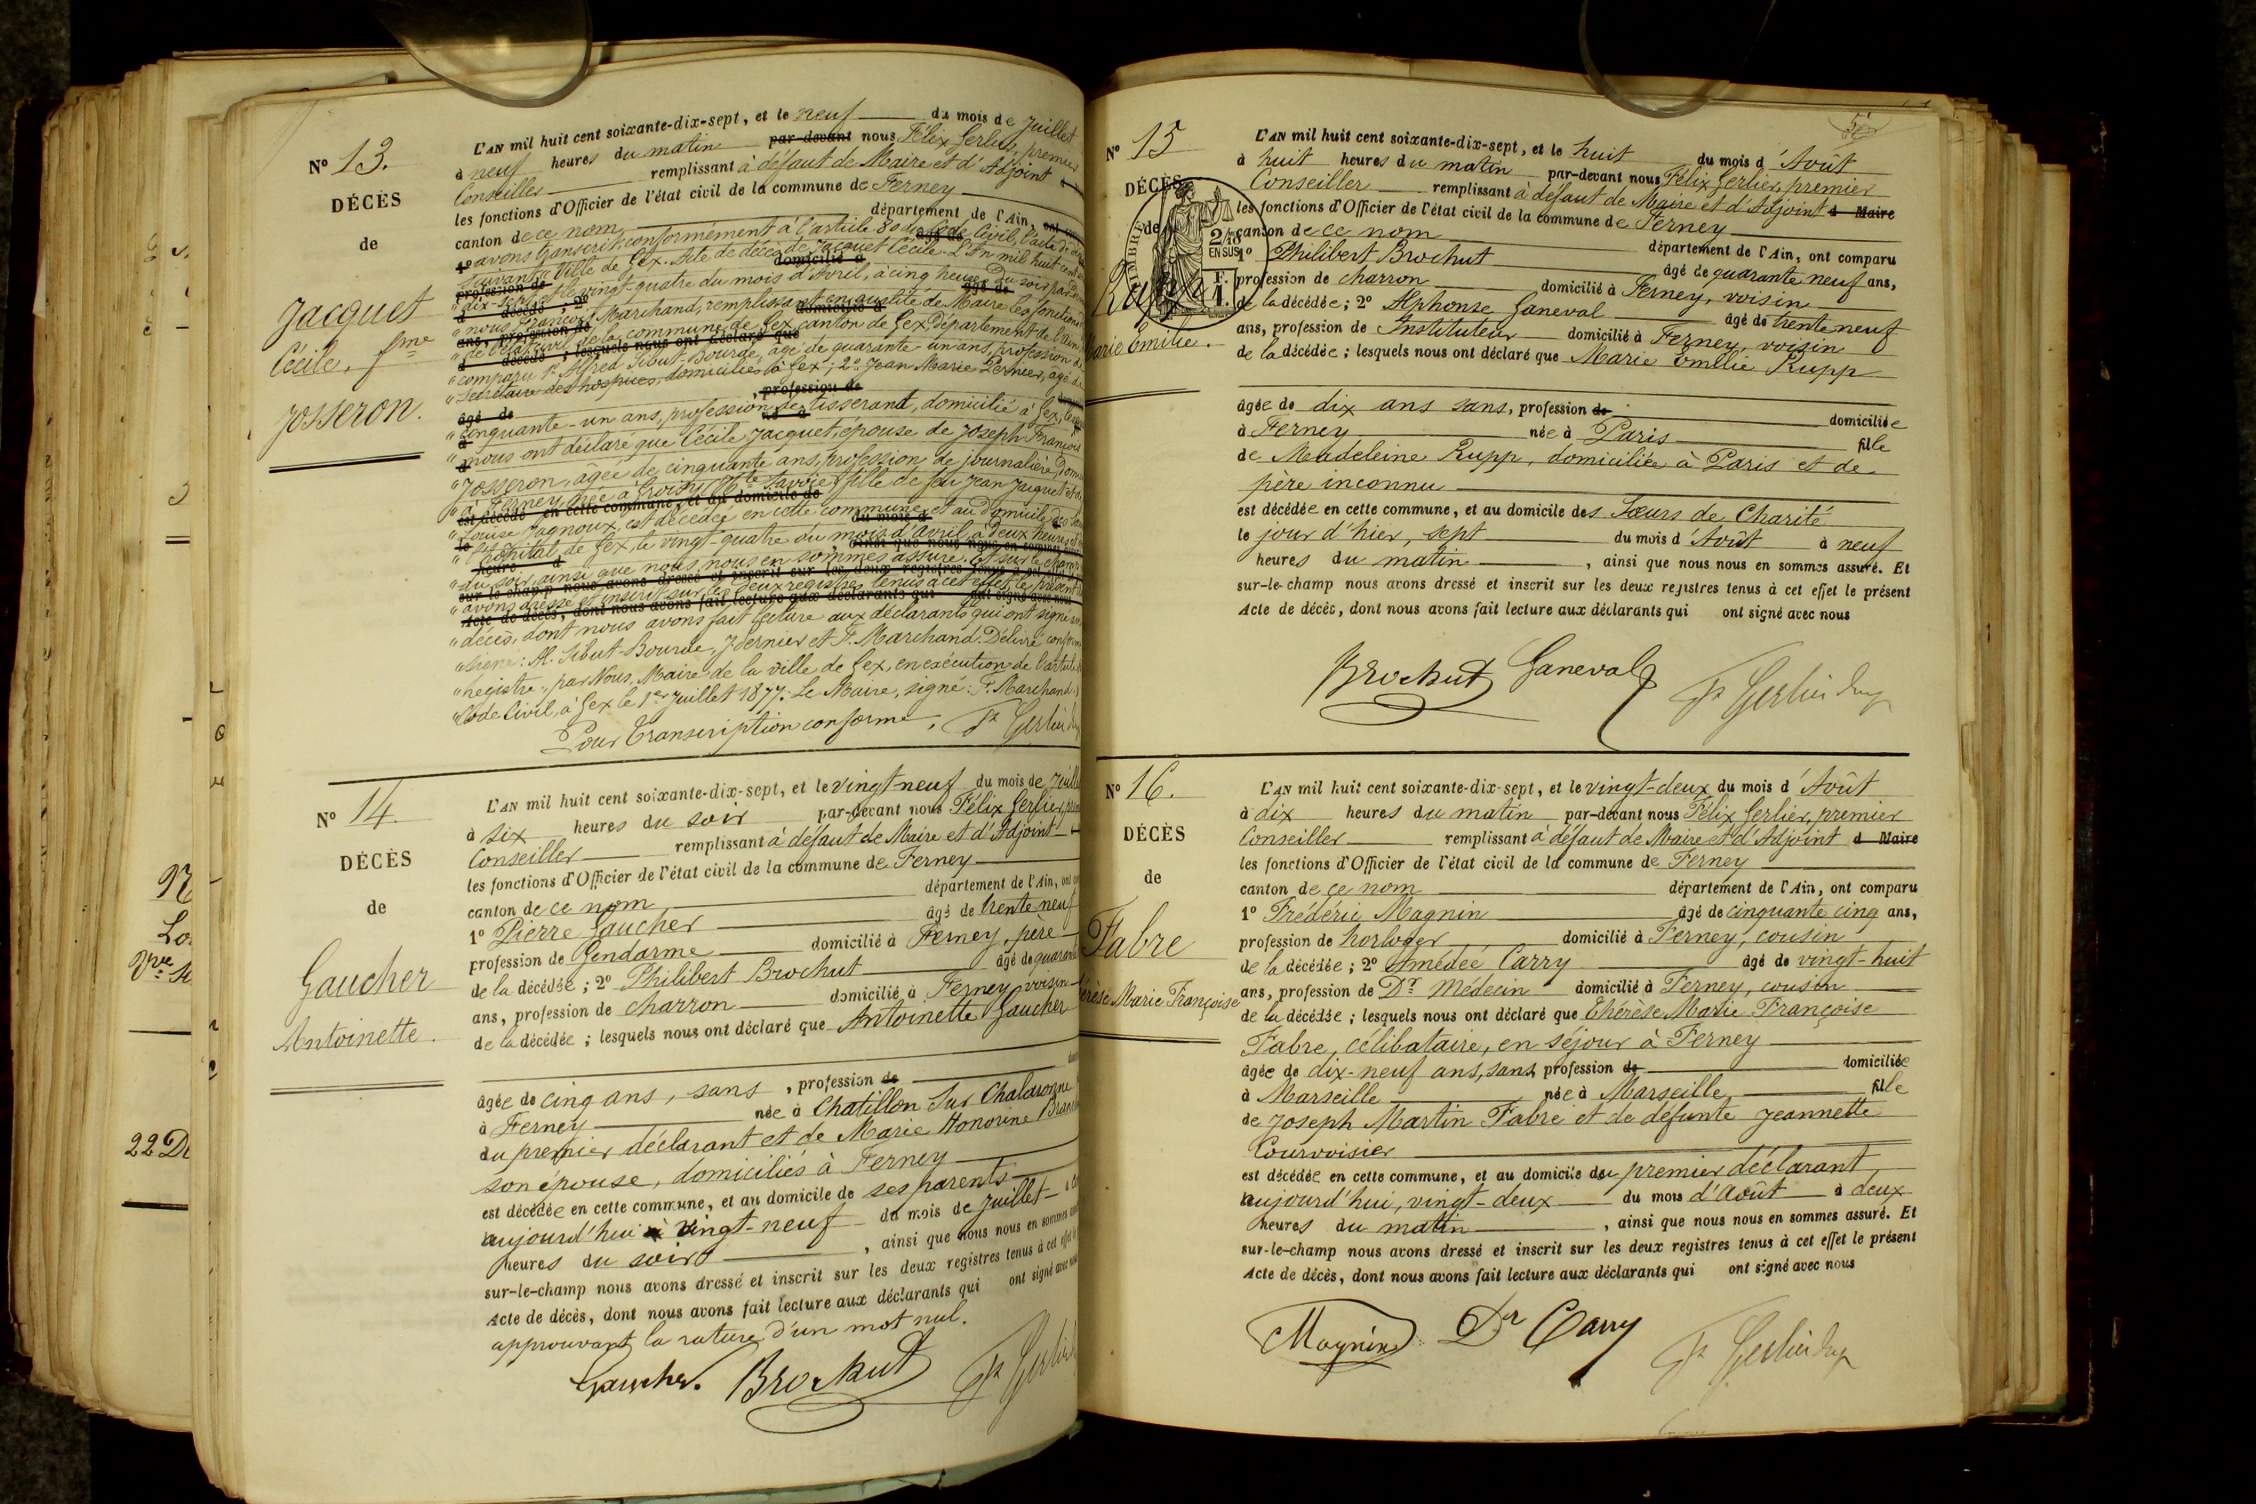 Nº 13.
DÉCÈS
de
Jacquet
Cécile, fme
Josseron.
L'AN mil huit cent soixante-dix-sept, et le neuf du mois de Juillet
à neuf heures du matin par-devant nous Félix Gerlier, premier
Conseiller remplissant à défaut de Maire et d'Adjoint
les fonctions d'Officier de l'état civil de la commune de Ferney
canton de ce nom département de l'Ain,
avons transcrit conformément à l'article 80 du Code Civil, l'acte de décès
suivant: Ville de Gex. Acte de décès de Jacquet Cécile. L'An mil huit cent
"dix-sept et le vingt-quatre du mois d'Avril, à cinq heures du soir par
"nous François Marchand, remplissant en qualité de Maire les fonctions
"de l'état civil de la commune de Gex canton de Gex, Département de l'Ain
"comparu 1º Alfred Sibut-Bourde, âgé de quarante-un ans, profession de
"Secrétaire des hospices, domicilié à Gex; 2º Jean Marie Pernier, âgé de
"cinquante-un ans, profession de tisserand, domicilié à Gex,
"nous ont déclaré que Cécile Jacquet, épouse de Joseph François
"Josseron, âgée de cinquante ans, profession de journalière,
"à Ferney, née à Savoie, fille de feu Jean Jacquet et de
"Louise est décédée en cette commune et au domicile
"l'hôpital de Gex, le vingt-quatre du mois d'Avril, à deux heures
"du soir, ainsi que nous nous en sommes assuré. Et sur le champ
"avons dressé et inscrit sur les deux registres tenus à cet effet le présent
"décès, dont nous avons fait lecture aux déclarants qui ont signé
"Signé: Al. Sibut-Bourde, Pernier et F. Marchand. Délivré conforme
"registre, par Nous, Maire de la ville de Gex, en exécution de l'article
"Code Civil, à Gex le 1er Juillet 1877. Le Maire, signé: F. Marchand.
Pour transcription conforme. Fx Gerlier
Nº 14.
DÉCÈS
de
Gaucher
Antoinette.
L'AN mil huit cent soixante-dix-sept, et le vingt-neuf du mois de Juillet
à six heures du soir par-devant nous Félix Gerlier,
Conseiller remplissant à défaut de Maire et d'Adjoint
les fonctions d'Officier de l'état civil de la commune de Ferney
canton de ce nom département de l'Ain, ont
1º Pierre Gaucher âgé de trente neuf
profession de Gendarme domicilié à Ferney, père
de la décédée; 2º Philibert Brochut âgé de quarante
ans, profession de charron domicilié à Ferney, voisin
de la décédée; lesquels nous ont déclaré que Antoinette Gaucher
âgée de cinq ans, sans, profession de
à Ferney née à Chatillon Sur Chalaronne
du premier déclarant et de Marie Honorine
son épouse, domiciliés à Ferney
est décédée en cette commune, et au domicile de ses parents
aujourd'hui vingt-neuf du mois de Juillet
heures du soir, ainsi que nous nous en sommes
sur-le-champ nous avons dressé et inscrit sur les deux registres tenus à cet effet
Acte de décès, dont nous avons fait lecture aux déclarants qui ont signé avec nous
approuvant la rature d'un mot nul.
Gaucher. Brochut Fx Gerlier
Nº 15
DÉCÈS
de
TIMBRE
2/10
EN SUS
F.
1.
Rupp
Marie Emilie.
L'AN mil huit cent soixante-dix-sept, et le huit du mois d'Août
à huit heures du matin par-devant nous Félix Gerlier, premier
Conseiller remplissant à défaut de Maire et d'Adjoint d Maire
les fonctions d'Officier de l'état civil de la commune de Ferney
canton de ce nom département de l'Ain, ont comparu
1º Philibert Brochut âgé de quarante neuf ans,
profession de charron domicilié à Ferney, voisin
de la décédée; 2º Alphonse Ganeval âgé de trente neuf
ans, profession de Instituteur domicilié à Ferney, voisin
de la décédée; lesquels nous ont déclaré que Marie Emilie Rupp
âgée de dix ans sans, profession de domiciliée
à Ferney née à Paris fille
de Madeleine Rupp, domiciliée à Paris et de
père inconnu
est décédée en cette commune, et au domicile des Sœurs de Charité
le jour d'hier, sept du mois d'Août à neuf
heures du matin, ainsi que nous nous en sommes assuré. Et
sur-le-champ nous avons dressé et inscrit sur les deux registres tenus à cet effet le présent
Acte de décès, dont nous avons fait lecture aux déclarants qui ont signé avec nous
Brochut Ganeval Fx Gerlier
Nº 16.
DÉCÈS
de
Fabre
Thérèse Marie Françoise
L'AN mil huit cent soixante-dix-sept, et le vingt-deux du mois d'Août
à dix heures du matin par-devant nous Félix Gerlier, premier
Conseiller remplissant à défaut de Maire et d'Adjoint d Maire
les fonctions d'Officier de l'état civil de la commune de Ferney
canton de ce nom département de l'Ain, ont comparu
1º Frédéric Magnin âgé de cinquante cinq ans,
profession de horloger domicilié à Ferney, cousin
de la décédée; 2º Amédée Carry âgé de vingt-huit
ans, profession de Dr Médecin domicilié à Ferney, cousin
de la décédée; lesquels nous ont déclaré que Thérèse Marie Françoise
Fabre, célibataire, en séjour à Ferney
âgée de dix-neuf ans, sans profession de domiciliée
à Marseille née à Marseille, fille
de Joseph Martin Fabre et de défunte Jeannette
Courvoisier
est décédée en cette commune, et au domicile du premier déclarant
aujourd'hui, vingt-deux du mois d'Août à deux
heures du matin, ainsi que nous nous en sommes assuré. Et
sur-le-champ nous avons dressé et inscrit sur les deux registres tenus à cet effet le présent
Acte de décès, dont nous avons fait lecture aux déclarants qui ont signé avec nous
Magnin Dr Carry Fx Gerlier